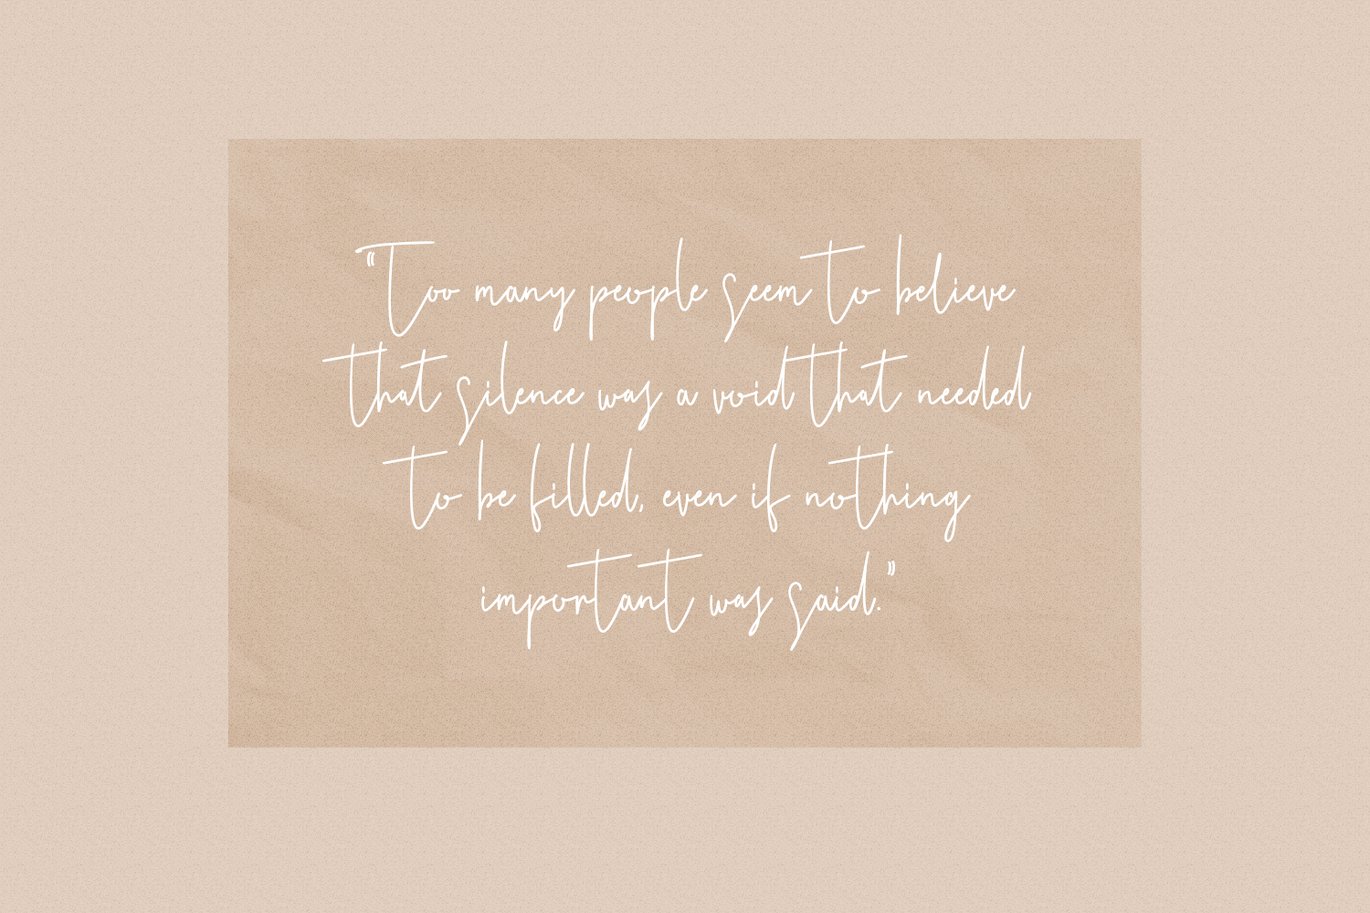 "Too many people seem to believe
that silence was a void that needed
to be filled, even if nothing
important was said."